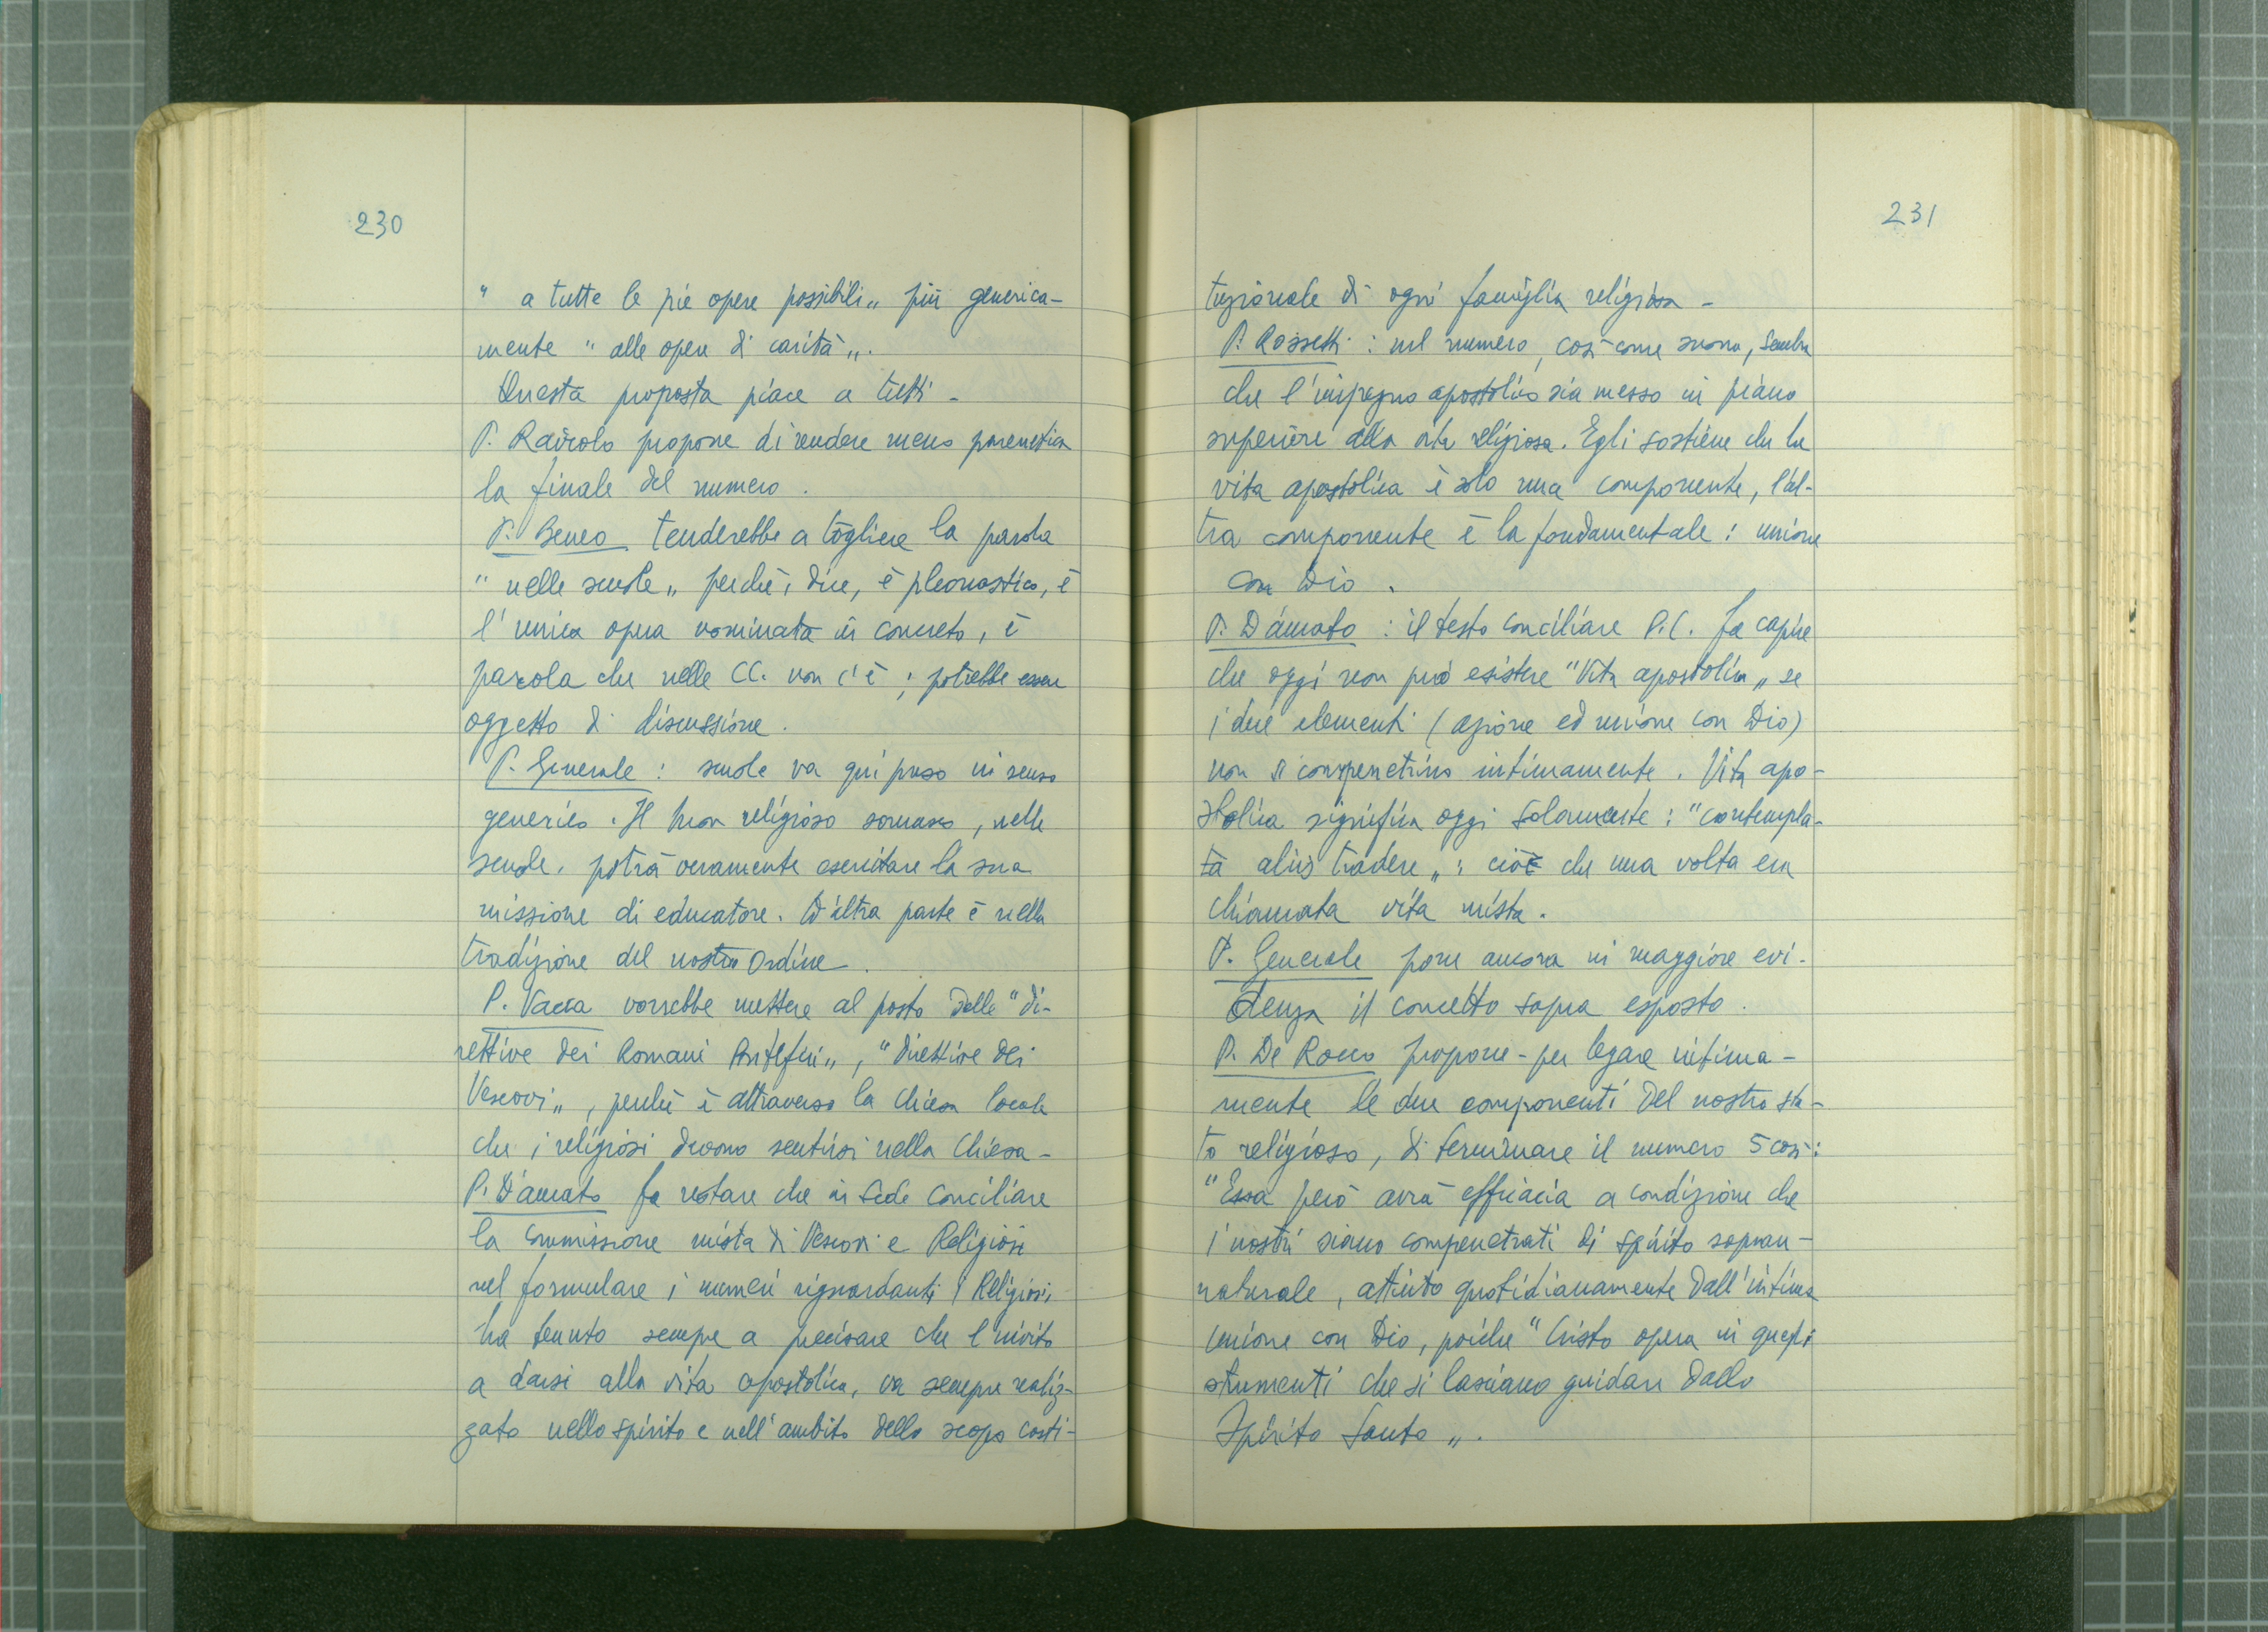 230
" a tutte le pie opere possibili„ più generica-
mente " alle opere di carità„.
Questa proposta piace a tutti -
P. Raviolo propone di rendere meno parenetica
la finale del numero.
P. Beneo tenderebbe a togliere la parola
" nelle scuole„ perchè, dice, è pleonastico, è
l'unica opera nominata in concreto, è
parola che nelle CC. non c'è; potrebbe essere
oggetto di discussione.
P. Generale: scuole va qui preso in senso
generico. Il buon religioso somasco, nelle
scuole, potrà veramente esercitare la sua
missione di educatore. D'altra parte è nella
tradizione del nostro Ordine.
P. Vacca vorrebbe mettere al posto delle "di-
rettive dei Romani Pontefici„, "direttive dei
Vescovi„, perchè è attraverso la Chiesa locale
che i religiosi devono sentirsi nella Chiesa -
P. D'Amato fa notare che in sede Conciliare
la Commissione mista di Vescovi e Religiosi
nel formulare i numeri riguardanti i Religiosi,
ha tenuto sempre a precisare che l'invito
a darsi alla vita apostolica, va sempre realiz-
zato nello spirito e nell'ambito dello scopo costi-
231
tuzionale di ogni famiglia religiosa -
P. Rossetti: nel numero, così come suona, sembra
che l'impegno apostolico sia messo in piano
superiore alla vita religiosa. Egli sostiene che la
vita apostolica è solo una componente, l'al-
tra componente è la fondamentale: unione
con Dio.
P. D'Amato: il testo conciliare P.C. fa capire
che oggi non può esistere "Vita apostolica„ se
i due elementi (azione ed unione con Dio)
non si compenetrino intimamente. Vita apo-
stolica significa oggi solamente: "contempla-
ta aliis tradere„: ciò che una volta era
chiamata vita mista.
P. Generale pone ancora in maggiore evi-
denza il concetto sopra esposto.
P. De Rocco propone - per legare intima-
mente le due componenti del nostro sta-
to religioso, di terminare il numero 5 così:
"Essa però avrà efficacia a condizione che
i nostri siano compenetrati di spirito sopran-
naturale, attinto quotidianamente dall'intima
unione con Dio, poichè "Cristo opera in quegli
strumenti che si lasciano guidare dallo
Spirito Santo„.